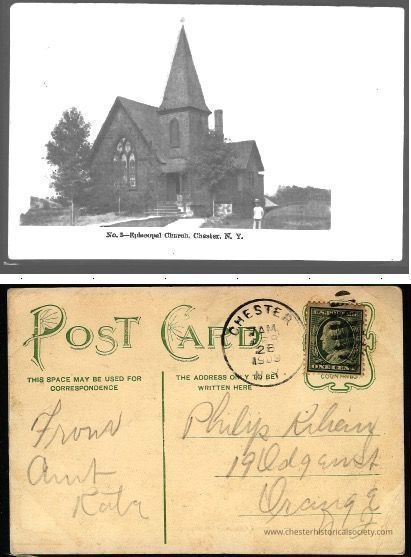 No. 5—Episcopal Church, Chester, N. Y.
POST CARD
THIS SPACE MAY BE USED FOR
CORRESPONDENCE
THE ADDRESS ONLY TO BE
WRITTEN HERE
CHESTER
7 AM
28
1909
N.Y.
ONE CENT
From
Aunt
Kate
Philip
19
Orange
www.chesterhistoricalsociety.com